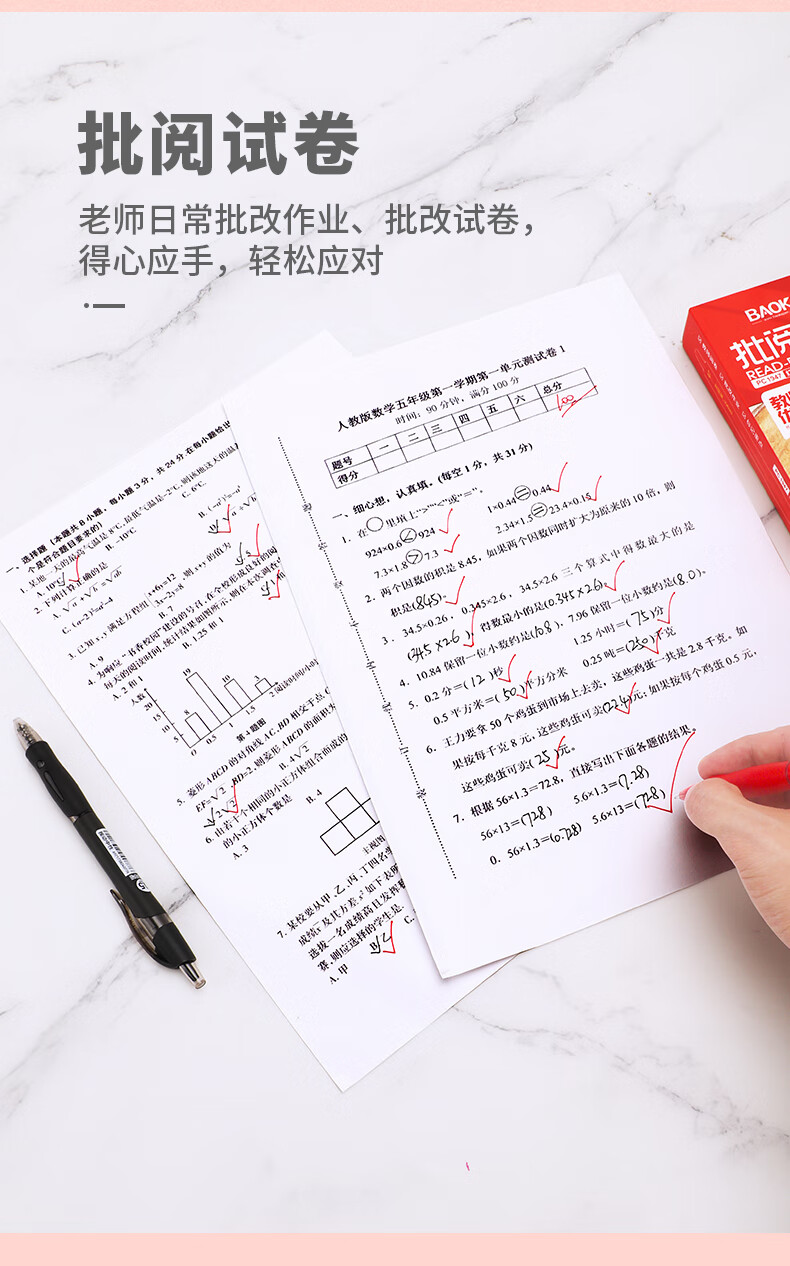 批阅试卷
老师日常批改作业、批改试卷，
得心应手，轻松应对
BAOK
批阅
READ-
PC1947
人教版数学五年级第一学期第一单元测试卷1
时间：90分钟，满分100分
题号 一 二 三 四 五 六 总分
得分 100
一、细心想，认真填。(每空1分，共31分)
1. 在○里填上“>”“<”或“=”。
924×0.6<924 1×0.44=0.44
7.3×1.8>7.3 2.34×1.5=23.4×0.15
2. 两个因数的积是8.45，如果两个因数同时扩大为原来的10倍，则
积是(845)。
3. 34.5×0.26、0.345×2.6、34.5×2.6三个算式中得数最大的是
(34.5×2.6)，得数最小的是(0.345×2.6)。
4. 10.84保留一位小数约是(10.8)，7.96保留一位小数约是(8.0)。
5. 0.2分=(12)秒 1.25小时=(75)分
0.5平方米=(50)平方分米 0.25吨=(250)千克
6. 王力要拿50个鸡蛋到市场上去卖，这些鸡蛋一共是2.8千克。如
果按每千克8元，这些鸡蛋可卖(22.4)元；如果按每个鸡蛋0.5元，
这些鸡蛋可卖(25)元。
7. 根据56×1.3=72.8，直接写出下面各题的结果。
56×13=(728) 5.6×1.3=(7.28)
0.56×1.3=(0.728) 5.6×13=(72.8)
一、选择题（本题共8小题，每小题3分，共24分.在每小题给出
个是符合题目要求的）
1. 某地一天的最高气温是8℃,最低气温是-2℃,则该地这天的温
A. 10℃ B. -10℃ C. 6℃
2. 下列计算正确的是
A. √a+√b=√ab B. (-a²)²=a⁴
C. (a-2)²=a²-4
3. 已知x,y满足方程组 x+6y=12 3x-2y=8 ,则x+y的值为
A. 9 B. 7
4. 为响应“书香校园”建设的号召,在全校形成良好的阅
每天的阅读时间,统计结果如图所示,则在本次调查中
A. 2和1 B. 1.25和1
人数
20
15
10
5
8 19 10
O 0.5 1 1.5 2 阅读时间/小时
第4题图
5. 菱形ABCD的对角线AC,BD相交于点O
EF=√2,BD=2,则菱形ABCD的面积为
2√2 B. 4√2
6. 由若干个相同的小正方体组合而成的
的小正方体个数是
A. 3 B. 4
主视图
7. 某校要从甲、乙、丙、丁四名学
成绩x及其方差s²如下表所
选拔一名成绩高且发挥稳
赛,则应选择的学生是
A. 甲 B. 乙 C.